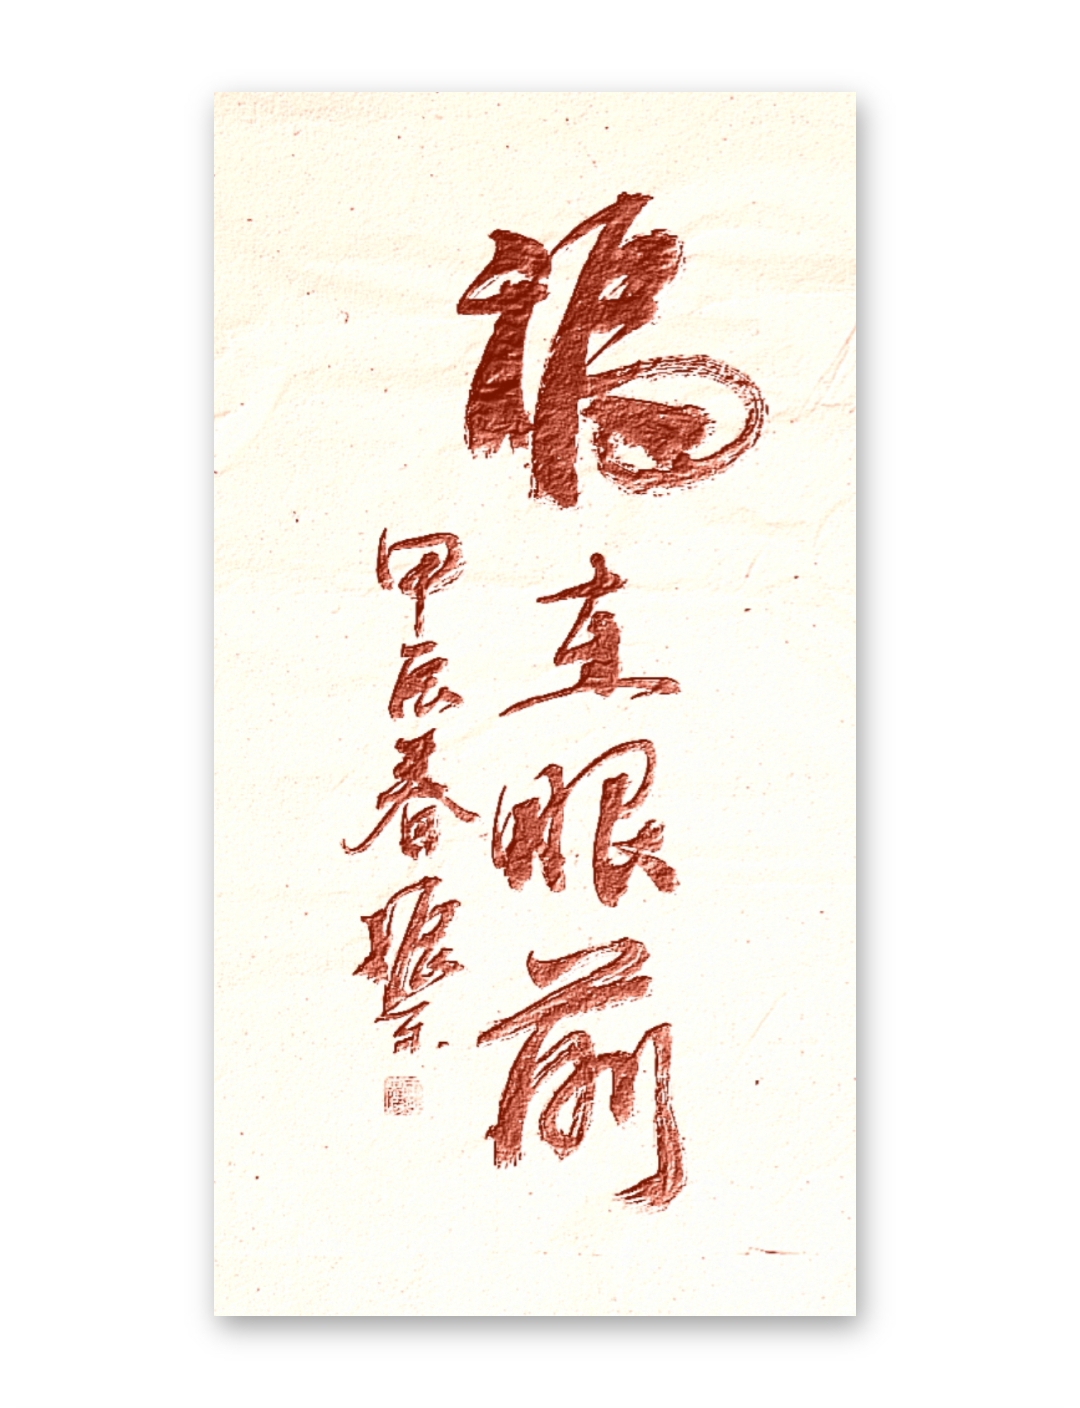 福在眼前
甲辰春